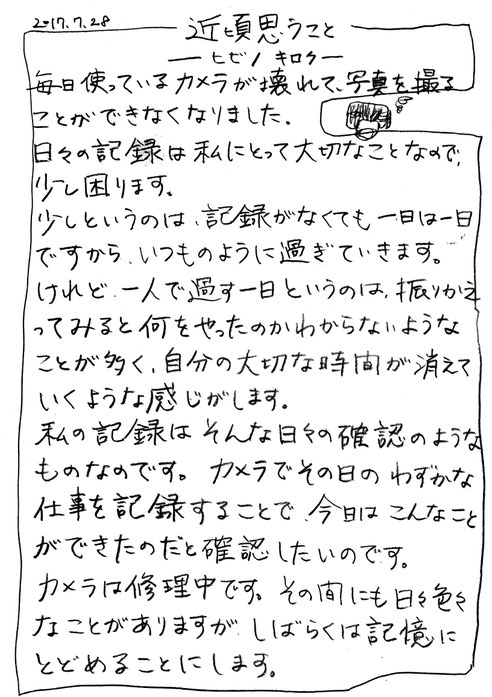 2017.7.28
近頃思うこと
ーヒビノ キロクー
毎日使っているカメラが壊れて、写真を撮る
ことができなくなりました。
日々の記録は私にとって大切なことなので、
少し困ります。
少しというのは、記録がなくても一日は一日
ですから、いつものように過ぎていきます。
けれど、一人で過す一日というのは、振りかえ
ってみると何をやったのかわからないような
ことが多く、自分の大切な時間が消えて
いくような感じがします。
私の記録はそんな日々の確認のような
ものなのです。カメラでその日のわずかな
仕事を記録することで、今日はこんなこと
ができたのだと確認したいのです。
カメラは修理中です。その間にも日々色々
なことがありますが、しばらくは記憶に
とどめることにします。